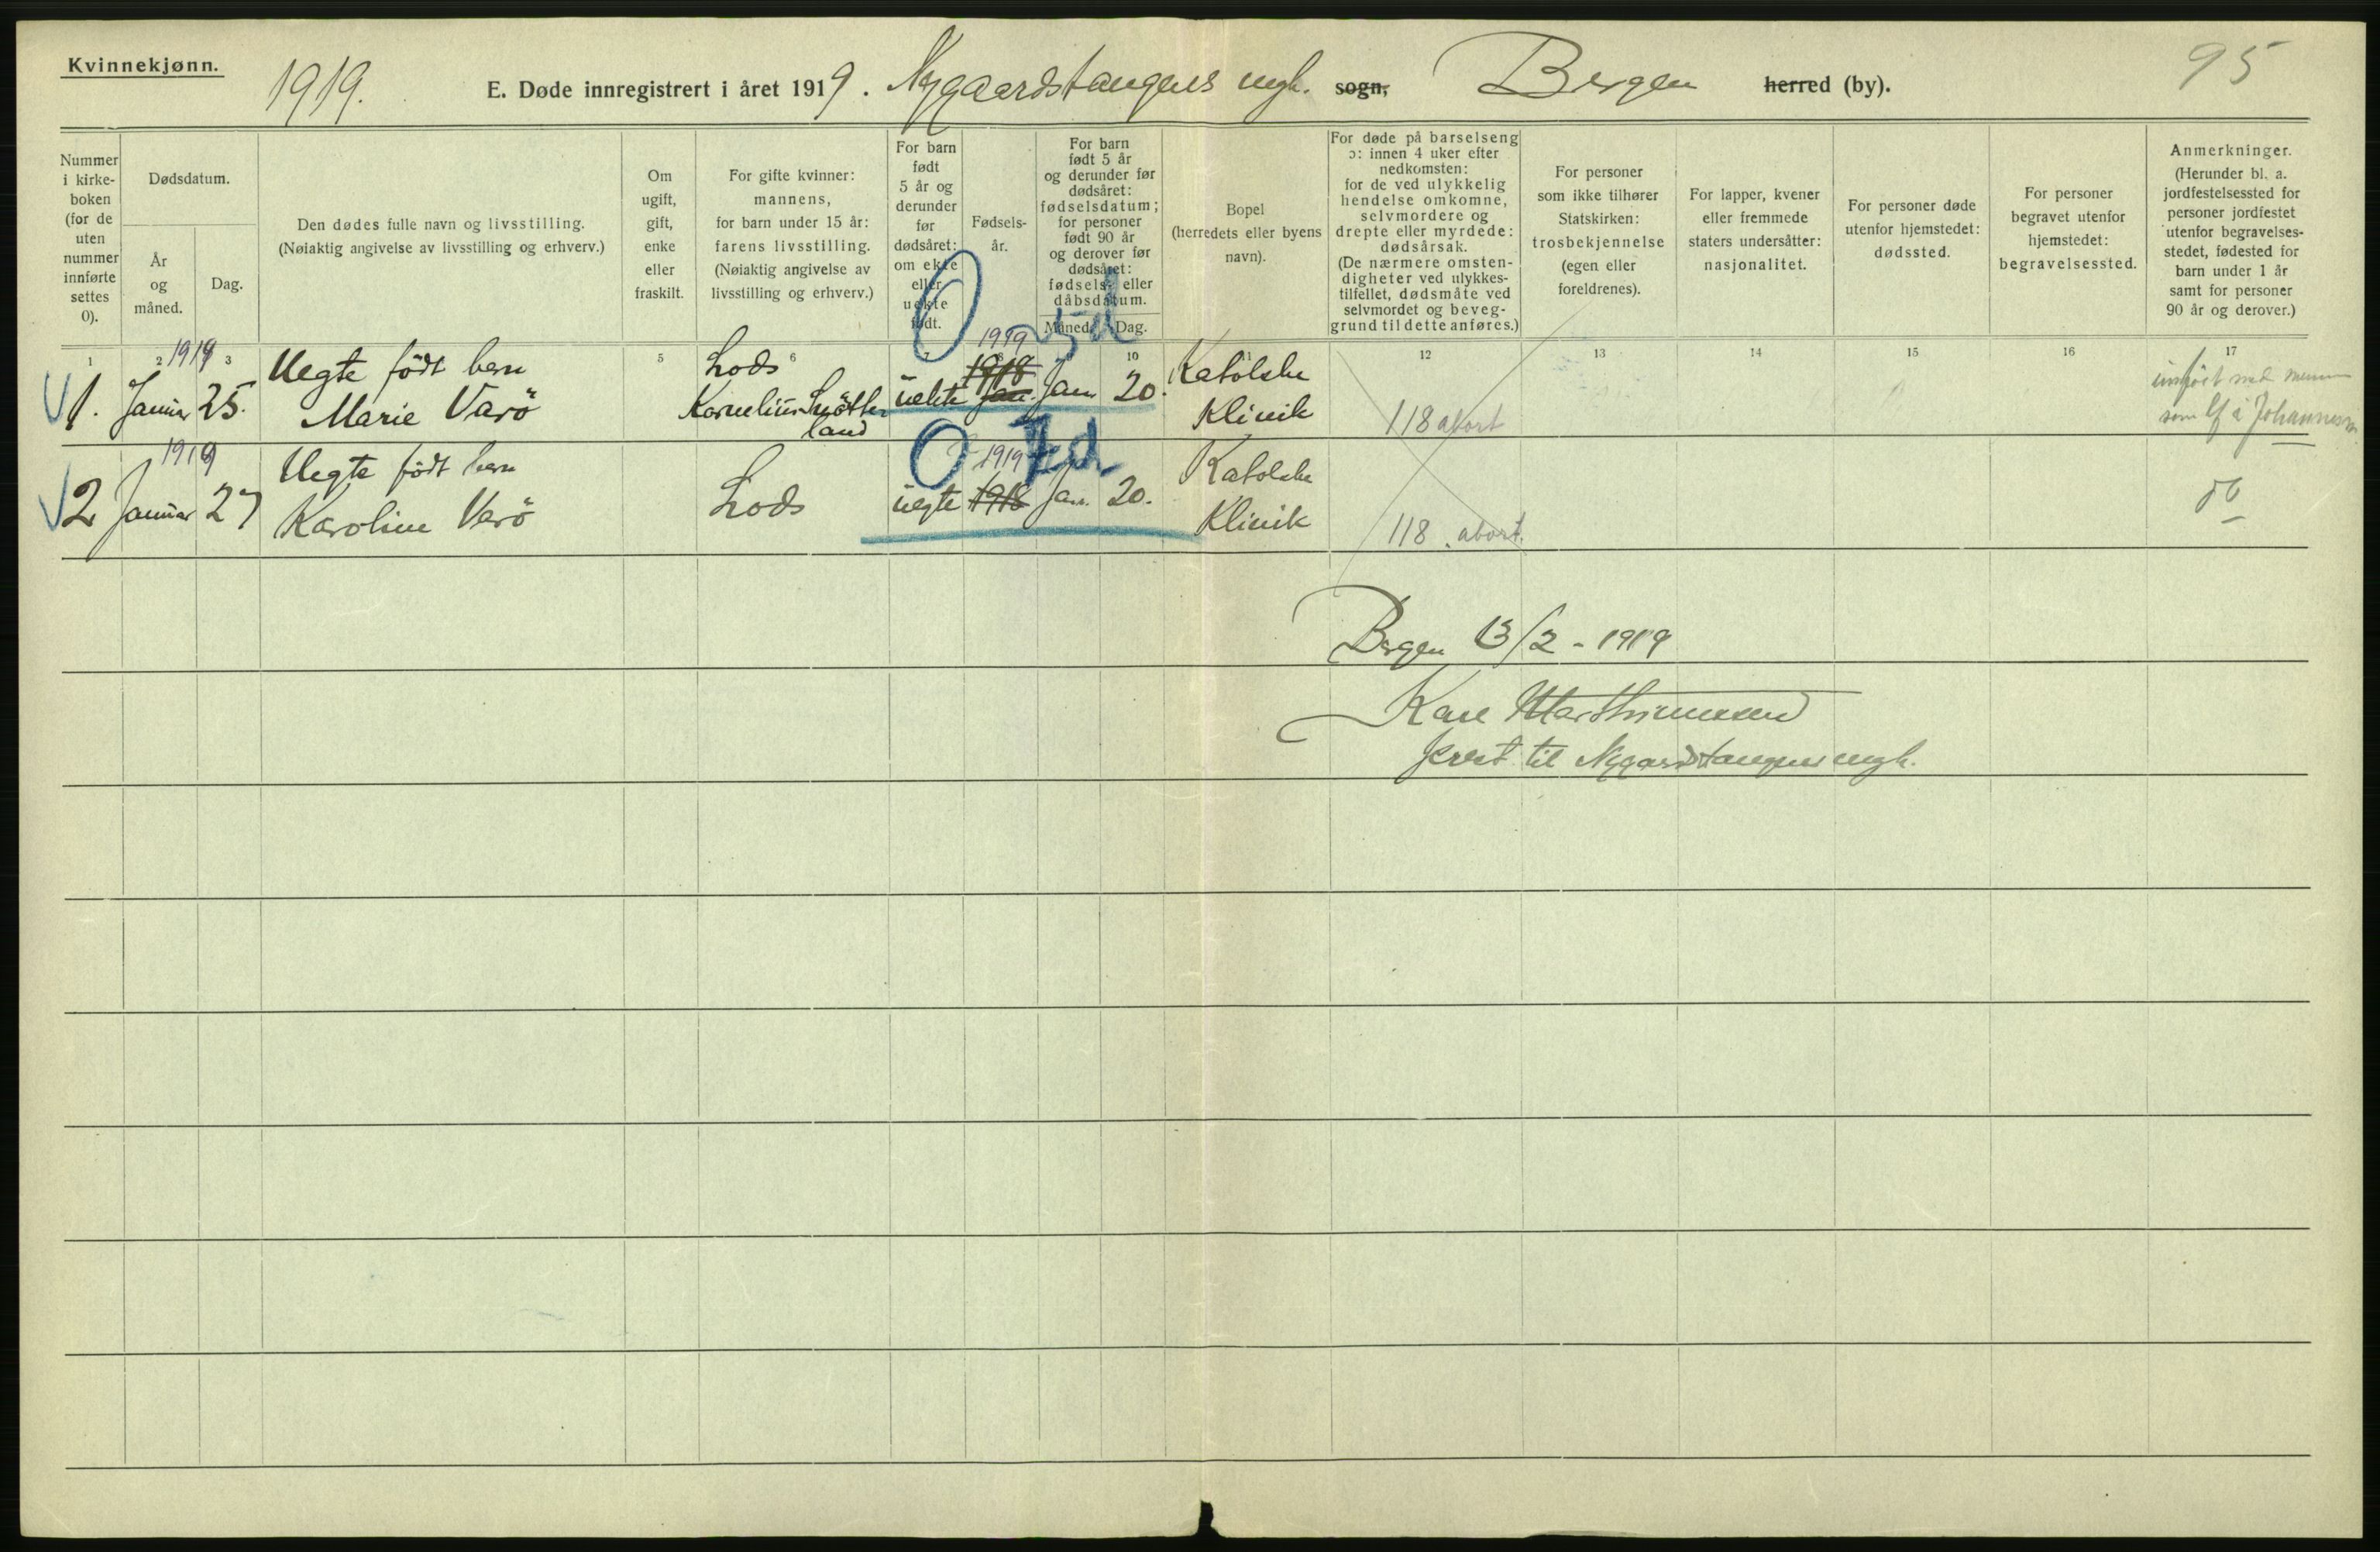 Kvinnekjønn.
1919.
E. Døde innregistrert i året 1919. Nygaardstangens mgh. sogn, Bergen herred (by).
95
Nummer
i kirke-
boken
(for de
uten
nummer
innførte
settes
0).
Dødsdatum.
År
og
måned.
Dag.
Den dødes fulle navn og livsstilling.
(Nøiaktig angivelse av livsstilling og erhverv.)
Om
ugift,
gift,
enke
eller
fraskilt.
For gifte kvinner:
mannens,
for barn under 15 år:
farens livsstilling.
(Nøiaktig angivelse av
livsstilling og erhverv.)
For barn
født
5 år og
derunder
før
dødsåret:
om ekte
eller
uekte
født.
Fødsels-
år.
For barn
født 5 år
og derunder før
dødsåret:
fødselsdatum;
for personer
født 90 år
og derover før
dødsåret:
fødsels- eller
dåbsdatum.
Måned. Dag.
Bopel
(herredets eller byens
navn).
For døde på barselseng
ɔ: innen 4 uker efter
nedkomsten:
for de ved ulykkelig
hendelse omkomne,
selvmordere og
drepte eller myrdede:
dødsårsak.
(De nærmere omsten-
digheter ved ulykkes-
tilfellet, dødsmåte ved
selvmordet og beveg-
grund til dette anføres.)
For personer
som ikke tilhører
Statskirken:
trosbekjennelse
(egen eller
foreldrenes).
For lapper, kvener
eller fremmede
staters undersåtter:
nasjonalitet.
For personer døde
utenfor hjemstedet:
dødssted.
For personer
begravet utenfor
hjemstedet:
begravelsessted.
Anmerkninger.
(Herunder bl. a.
jordfestelsessted for
personer jordfestet
utenfor begravelses-
stedet, fødested for
barn under 1 år
samt for personer
90 år og derover.)
1 2 3 5 6 7 8 10 11 12 13 14 15 16 17
0 5d
1919 Uegte født barn Lods 1919 1918 Katolske
1. Januar 25. Marie Varö Kornelius uekte Jan. Jan 20. Klinik 118 abort
land
som Johannes
0 7d
1919 Uegte født barn 1919 Katolske
2 Januar 27 Karoline Varö Lods uegte 1918 Jan. 20. Klinik 118. abort. do
Bergen 13/2 - 1919
Kare Marthinussen
prest til Nygaardstangens mgh.